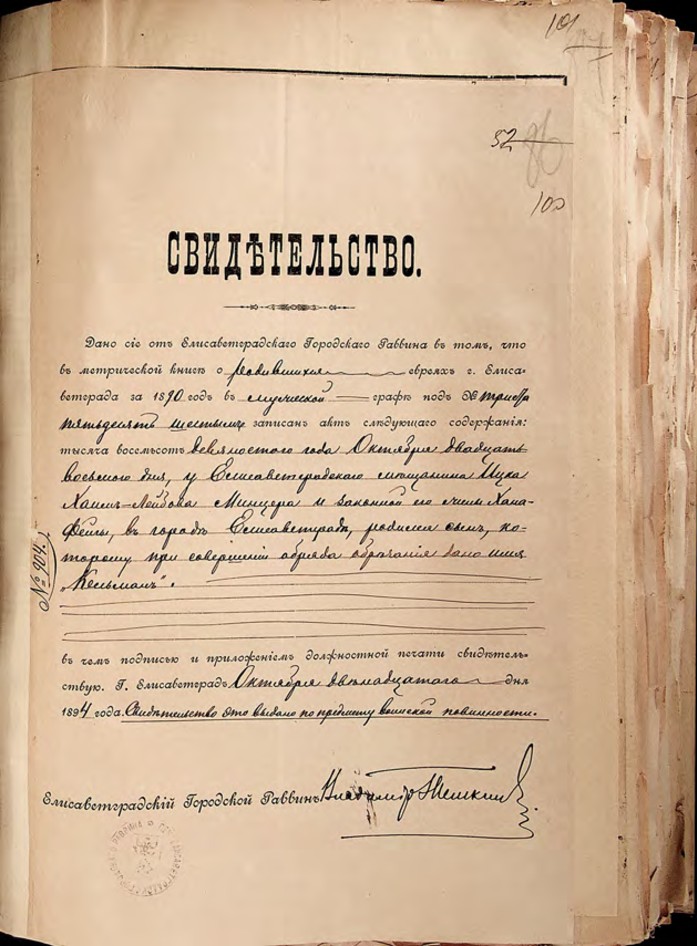 101
52
100
СВИДѢТЕЛЬСТВО.
Дано сіе отъ Елисаветградскаго Городскаго Раввина въ томъ, что
въ метрической книгѣ о родившихся евреяхъ г. Елиса-
ветграда за 1890 годъ въ мужеской графѣ подъ № триста
пятьдесятъ шестымъ записанъ актъ слѣдующаго содержанія:
тысяча восемьсотъ девяностаго года Октября двадцать
восьмого дня, у Елисаветградскаго мѣщанина Ицка
Хаимъ-Лейбова Минцера и законной его жены Хана-
Фейги, въ городѣ Елисаветградѣ, родился сынъ, ко-
торому при совершеніи обряда обрѣзанія дано имя
„Кельманъ".
№ 904.
въ чемъ подписью и приложеніемъ должностной печати свидѣтель-
ствую. Г. Елисаветградъ Октября двѣнадцатаго дня
1894 года. Свидѣтельство это выдано по предмету воинской повинности.
Елисаветградскій Городской Раввинъ Владимір